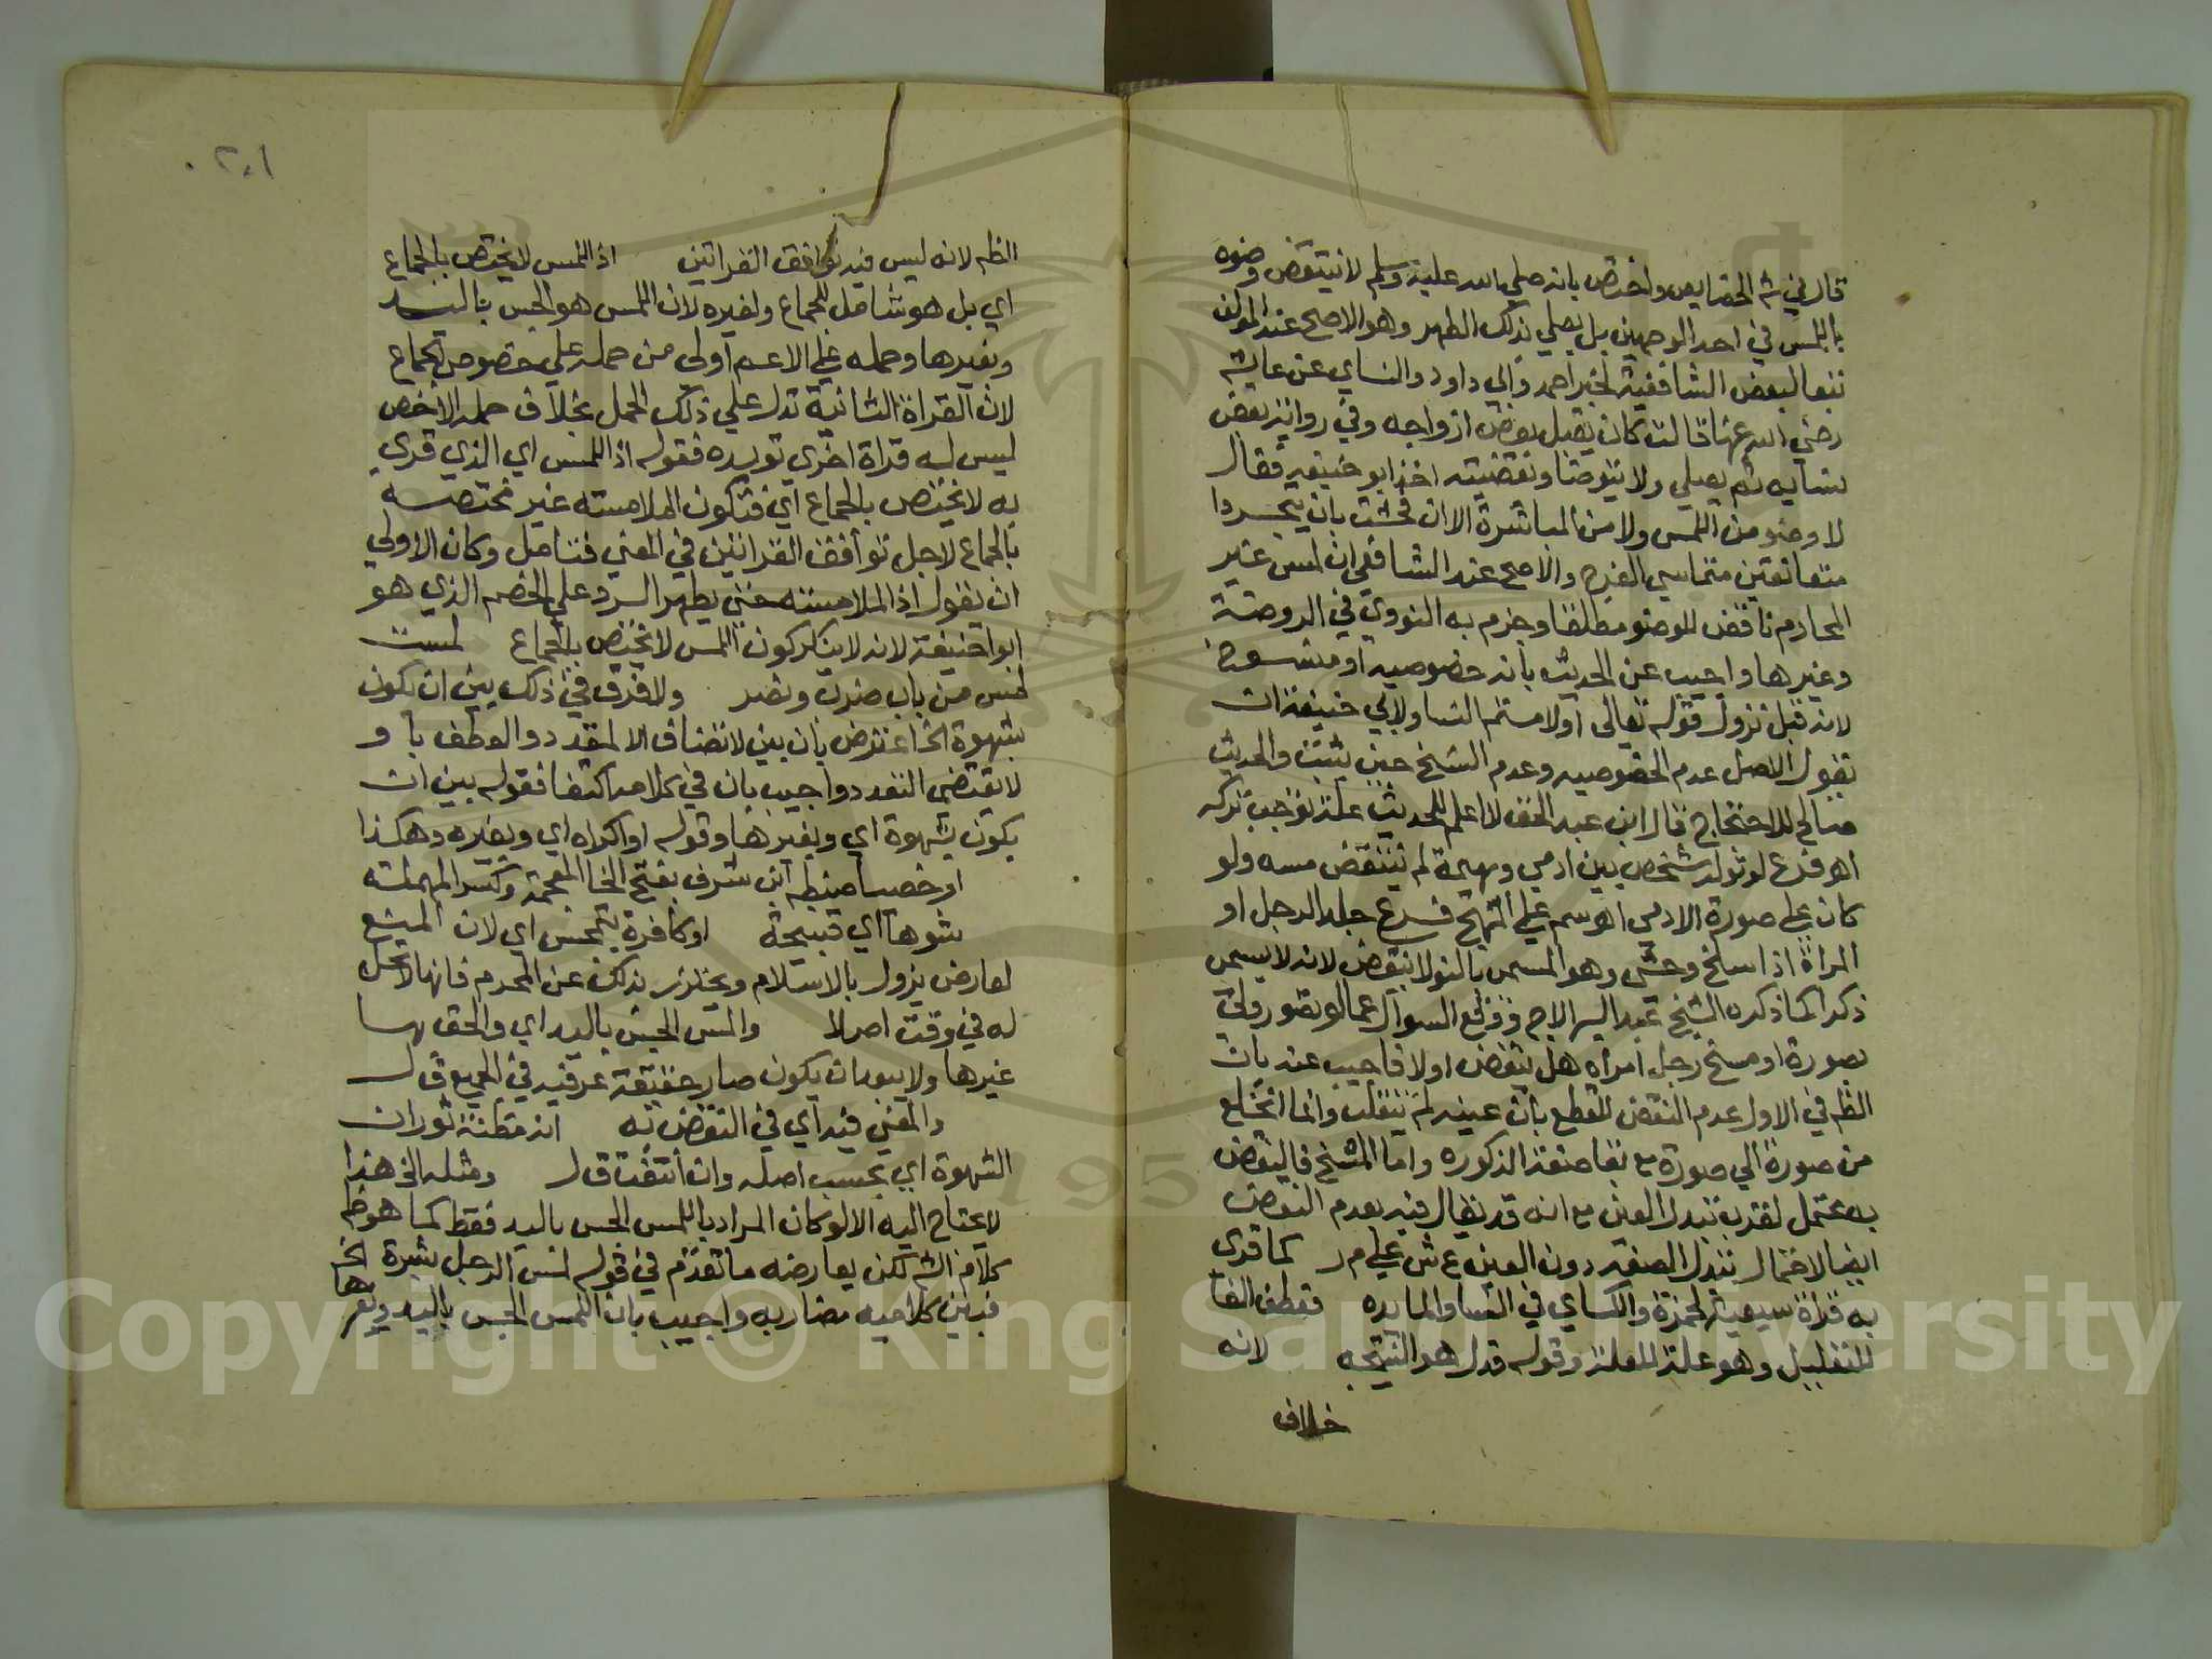 قال في شم الخصايص واختص بانه صلي الله عليه وسلم لا ينتقض وضوه
باللمس في احد الوجهين بل يصلي بذلك الطهر وهو الاصح عند المولف
تبعا لبعض الشافعية لخبر احمد وابي داود والنساي عن عايشه
رضي الله عنها قالت كان يقبل بعض ازواجه وفي رواية بعض
نسايه ثم يصلي ولا يتوضا وبقضيته اخذ ابو حنيفه فقال
لا وضو من اللمس ولا من المباشرة الا ان فحشت بان يتجردا
متعانقين متماسي الفرج والاصح عند الشافعي ان لمس غير
المحارم ناقض للوضو مطلقا وجزم به النووي في الروضة
وغيرها واجيب عن الحديث بانه خصوصيه او منسوخ
لانه قبل نزول قوله تعالى او لامستم النسا ولابي حنيفة ان
يقول الاصل عدم الخصوصيه وعدم النسخ حتي يثبت والحديث
صالح للاحتجاج قال ابن عبد الحق لا اعلم للحديث علة توجب تركه
اهو فرع لو تولد شخص بين ادمي وبهيمة لم ينتقض مسه ولو
كان علي صورة الادمي اهو سم علي المنهج فرع جلد الرجل او
المراة اذا سلخ وحشي وهو المسمى بالبو لا ينقض لانه لا يسمى
ذكرا كما ذكره الشيخ عبد البر الاجهوري ووقع السوال عما لو تصور ولي
بصورة او مسخ رجل امراه هل ينقض اولا فاجيب عنه بان
الظم في الاول عدم النقض للقطع بان عينه لم تنقلب وانما انخلع
من صورة الي صورة مع بقا صفة الذكوره واما المسخ فالنقض
به محتمل لقرب تبدل العين مع انه قد يقال فيه بعدم النقض
ايضا لاحتمال تبدل الصفه دون العين ع ش علي م ر كما قري
به قراة سبعية لحمزة والكساي في النسا والمايده فعطف الفا
للتعليل وهو علة للعلة وقوله فدل هو النتيجه لانه
خلاف
٢٠١
الظم لانه ليس فيه توافق القراتين اذ اللمس لا يختص بالجماع
اي بل هو شامل للجماع ولغيره لان اللمس هو الجس باليد
وبغيرها وحمله علي الاعم اولى من حمله علي خصوص الجماع
لان القراة الثانية تدل علي ذلك الحمل بخلاف حمله الاخص
ليس له قراة اخري تويده فقوله اذ اللمس اي الذي قري
به لا يختص بالجماع اي فتكون الملامسته غير مختصه
بالجماع لاجل توافق القراتين في المعني فتامل وكان الاولي
ان يقول اذ الملامسته حتي يظهر الرد علي الخصم الذي هو
ابو حنيفة لانه لا ينكر كون اللمس لا يختص بالجماع لمست
لمس من باب ضرب ونصر ولا فرق في ذلك بين ان يكون
بشهوة الخ اعترض بان بين لا تضاف الا لمتعدد والعطف باو
لا يقتضي التعدد واجيب بان في كلامه اكتفا فقوله بين ان
يكون بشهوة اي وبغيرها وقوله او اكراه اي وبغيره وهكذا
او خصيا ضبطه ابن شرف بفتح الخا المعجمة وكسر المهملته
شوها اي قبيحة او كافرة بتمجس اي لان المنع
لعارض يزول بالاسلام ويحترز بذلك عن المحرم فانها لا تحل
له في وقت اصلا والمس الجس باليد اي والحق بها
غيرها ولا يبعد ان يكون صار حقيقة عرفيه في الجميع ق ل
والمعني فيه اي في النقض به انه مظنة ثوران
الشهوة اي بحسب اصله وان انتفت ق ل ومثله الخ هذا
لا يحتاج اليه الا لو كان المراد باللمس الجس باليد فقط كما هو ظم
كلام الشم لكن يعارضه ما تقدم في قوله لمس الرجل بشرة الخ
فبين كلاميه تضارب واجيب بان اللمس الجس باليد وبغيرها
Copyright © King Saud University
1957